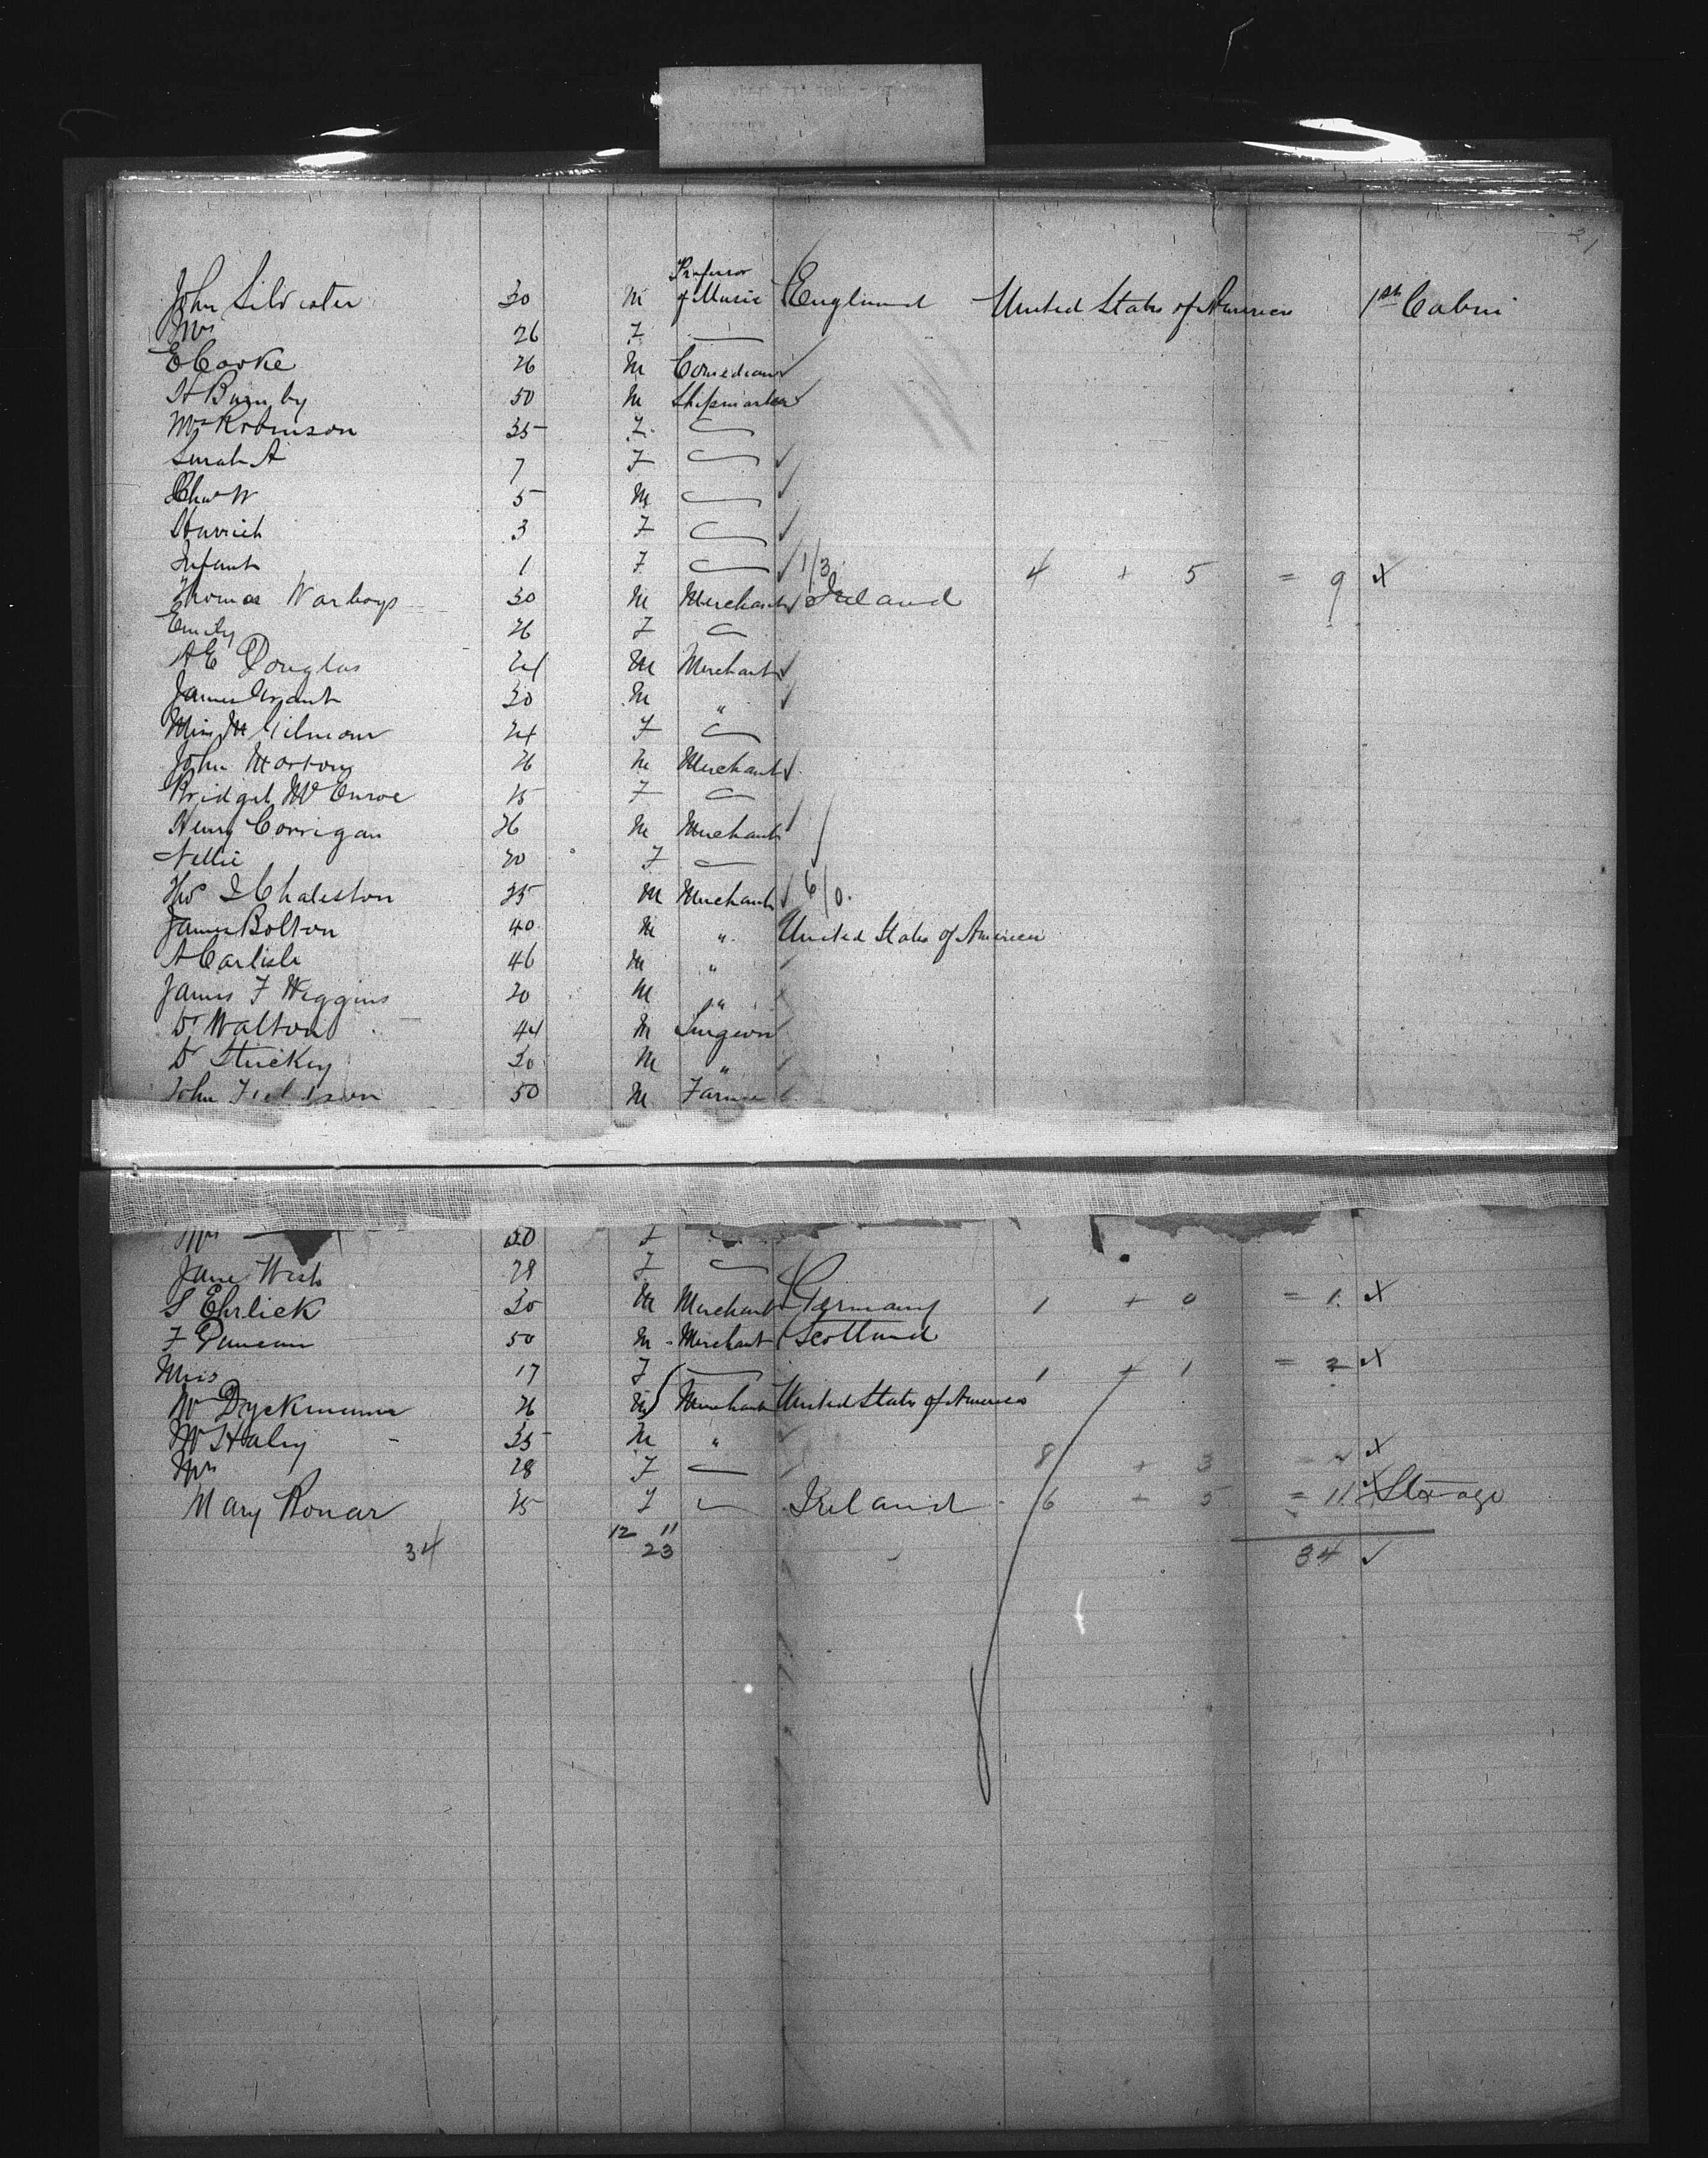 21
Professor
John Silvester 30 M of Music England United States of America 1st Cabin
Mrs 26 F
E Cooke 26 M Comedian
H Burnby 50 M Shipmaster
Mrs Robinson 35 F
Sarah A 7 F
Chas W 5 M
Harriet 3 F
Infant 1 F 1/3 4 + 5 = 9 x
Thomas Warboys 30 M Merchant Ireland
Emily 26 F
A E Douglas 24 M Merchant
James Grant 30 M "
Miss M Gilmour 24 F
John Morton 26 M Merchant
Bridget McEnroe 15 F
Henry Corrigan 26 M Merchant
Nellie 20 F
Thos I Chaleston 35 M Merchant 6/0.
James Bolton 40 M " United States of America
A Carlisle 46 M "
James F Wiggins 20 M "
Dr Walton 44 M Surgeon
Dr Stuckey 30 M "
John 50 M Farmer
Mrs 50 F
Jane West 28 F
S Ehrlick 30 M Merchant Germany 1 + 0 = 1 x
F Duncan 50 M Merchant Scotland
Miss 17 F 1 + 1 = 2 x
Mr Dyckmann 26 M Merchant United States of America
Mr Haley 35 M "
Mrs 28 F 8 + 3 x
Mary Ronar 25 F Ireland 6 + 5 = 11 x Sterage
12 11
34 23 34 ✓